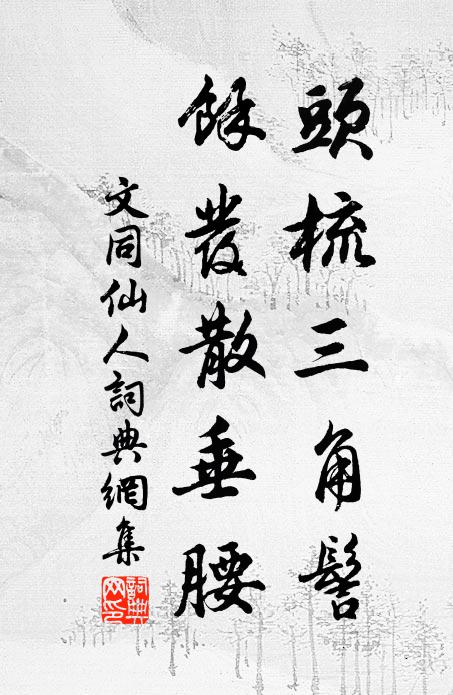 頭梳三角髻
餘發散垂腰
文同仙人詞典網集
詞典網印